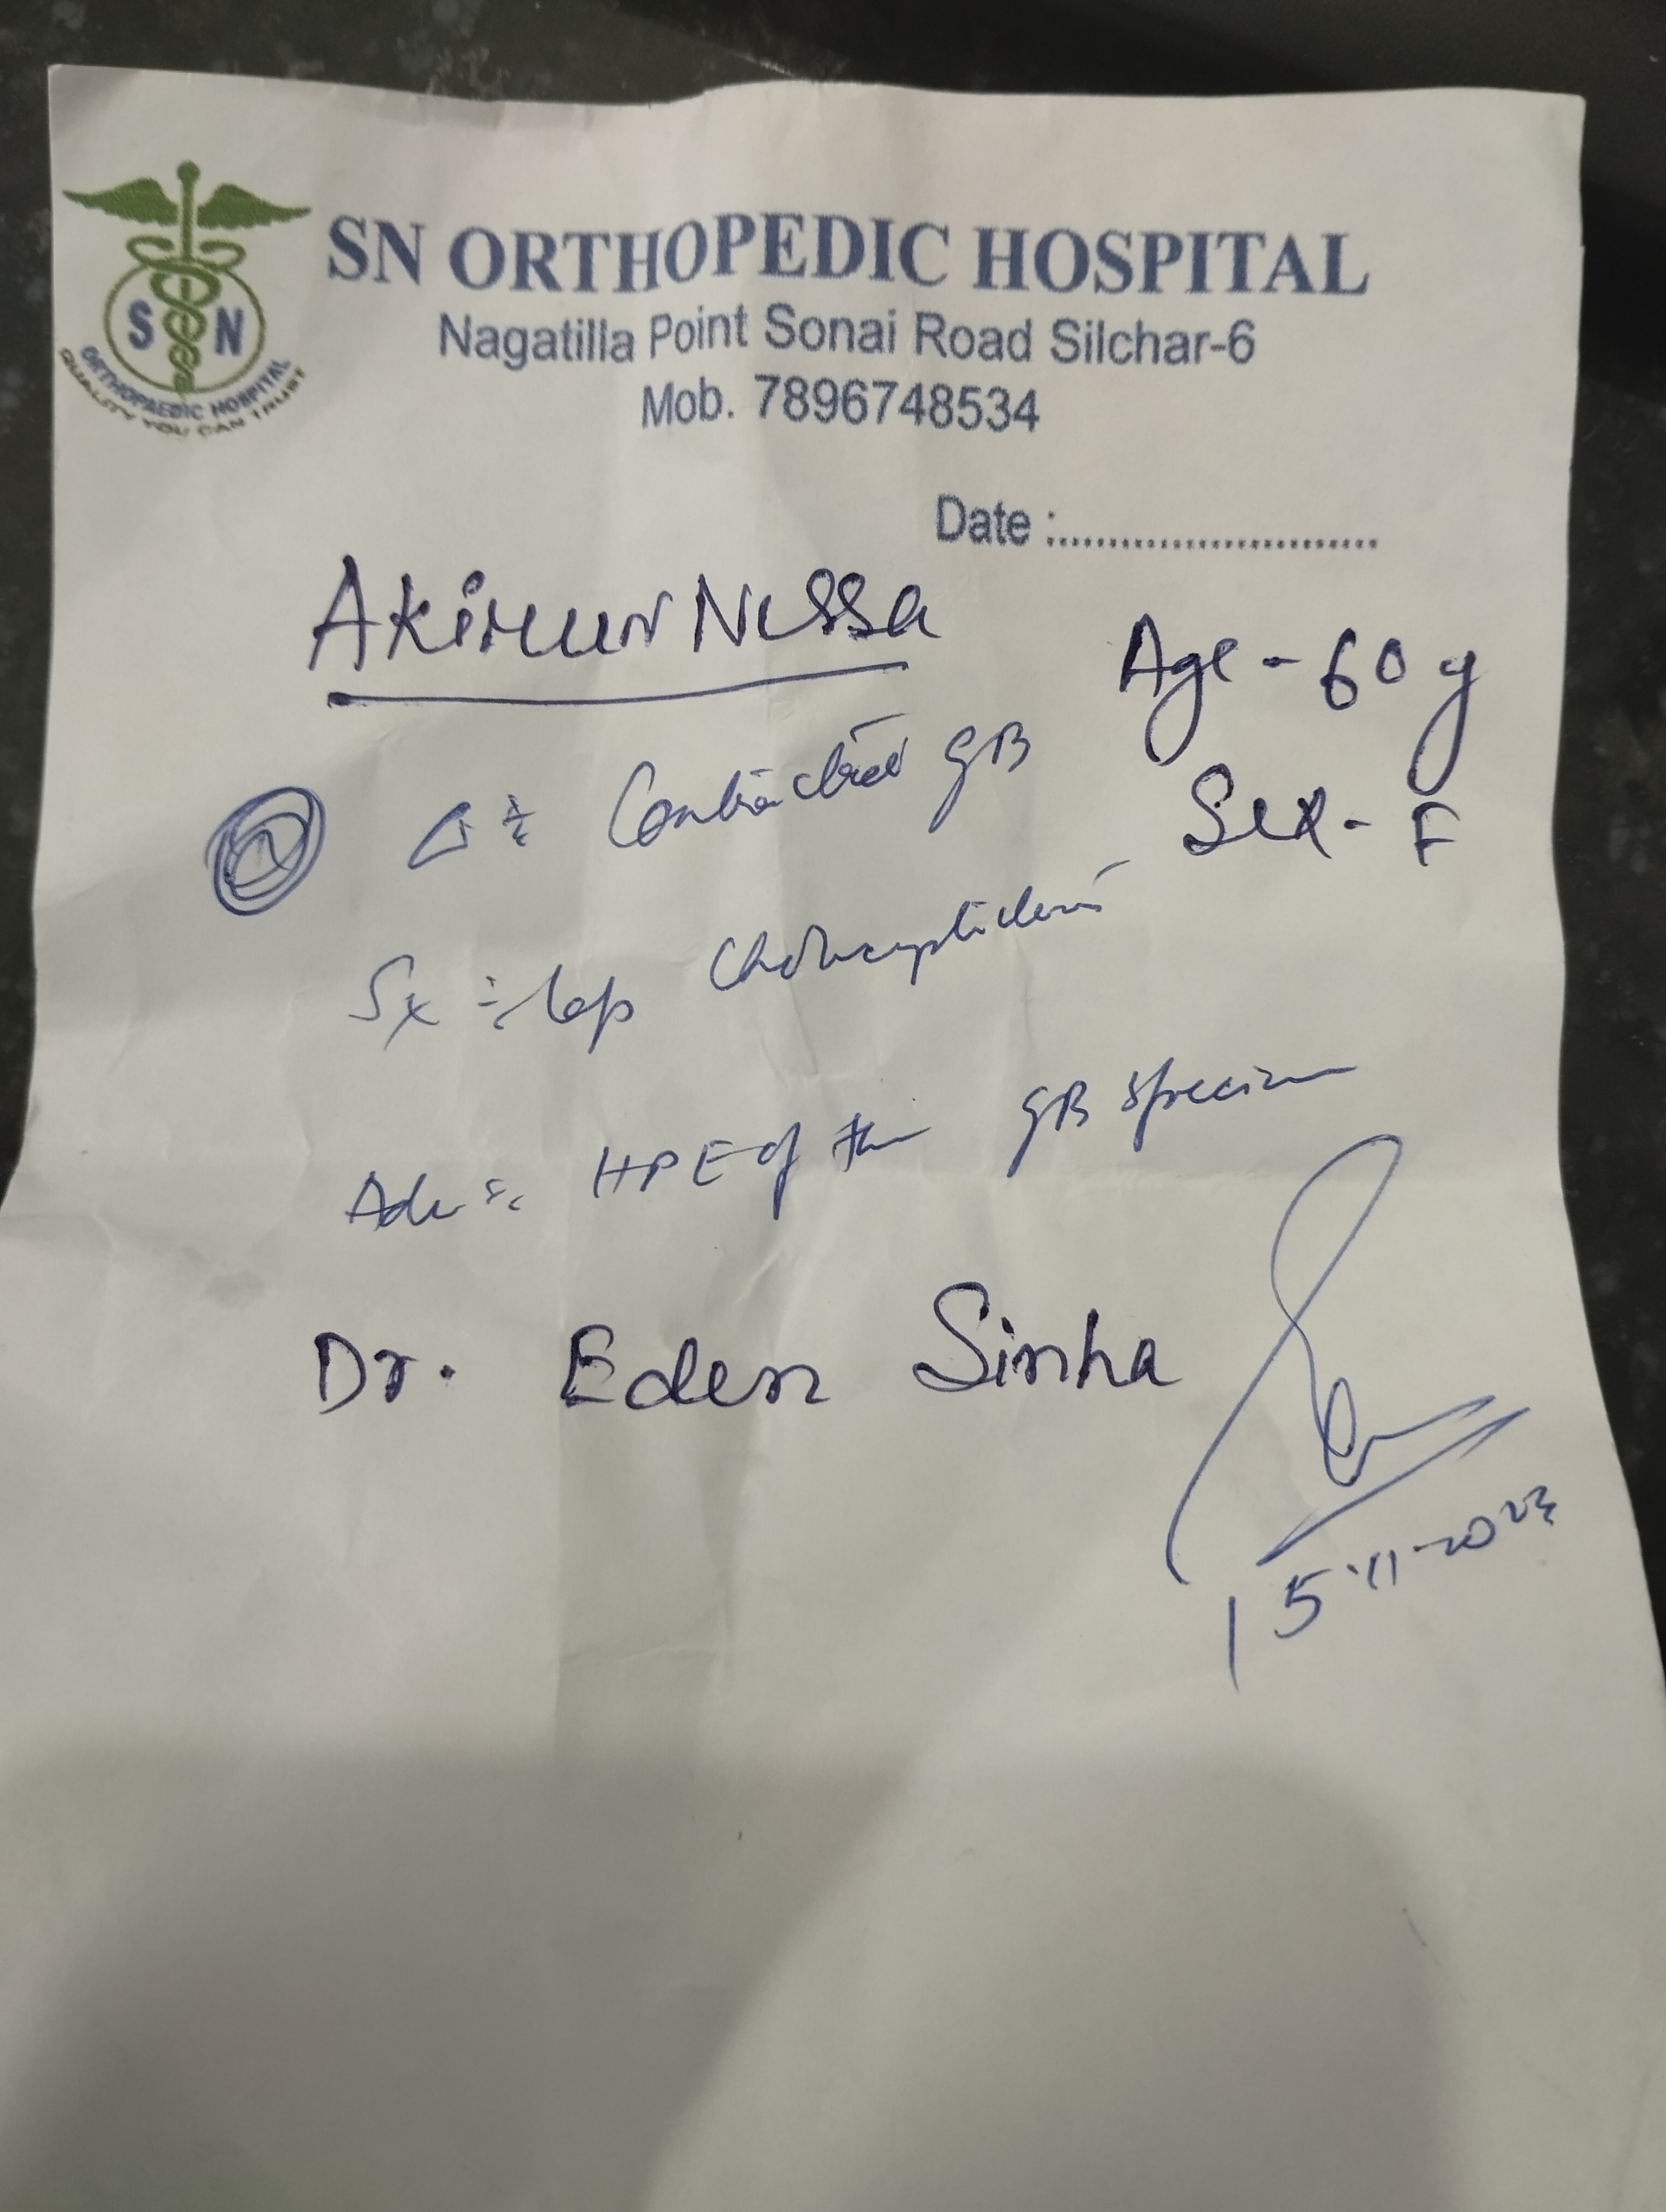 SN ORTHOPEDIC HOSPITAL
Nagatilla Point Sonai Road Silchar-6
Mob. 7896748534
S N
ORTHOPAEDIC HOSPITAL
QUALITY YOU CAN TRUST
Date :..............................
Nessa
Age - 60 y
Sex - F
Δ÷ Contracted GB
Sx ÷ Lap
Adv :- HPE of the GB specimen
Dr. Eden Sinha
15-11-2023